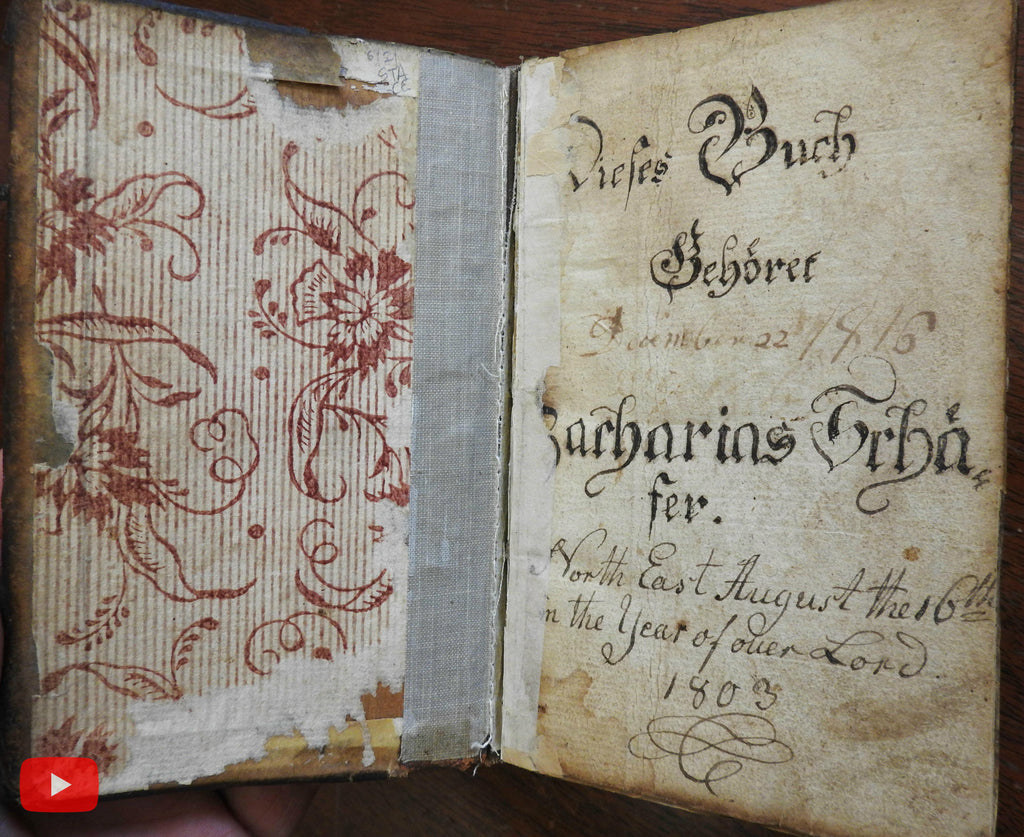 Dieses Buch
Gehöret
December 22 1816
Zacharias Schä-
fer.
North East August the 16th
in the Year of ouer Lord
1803